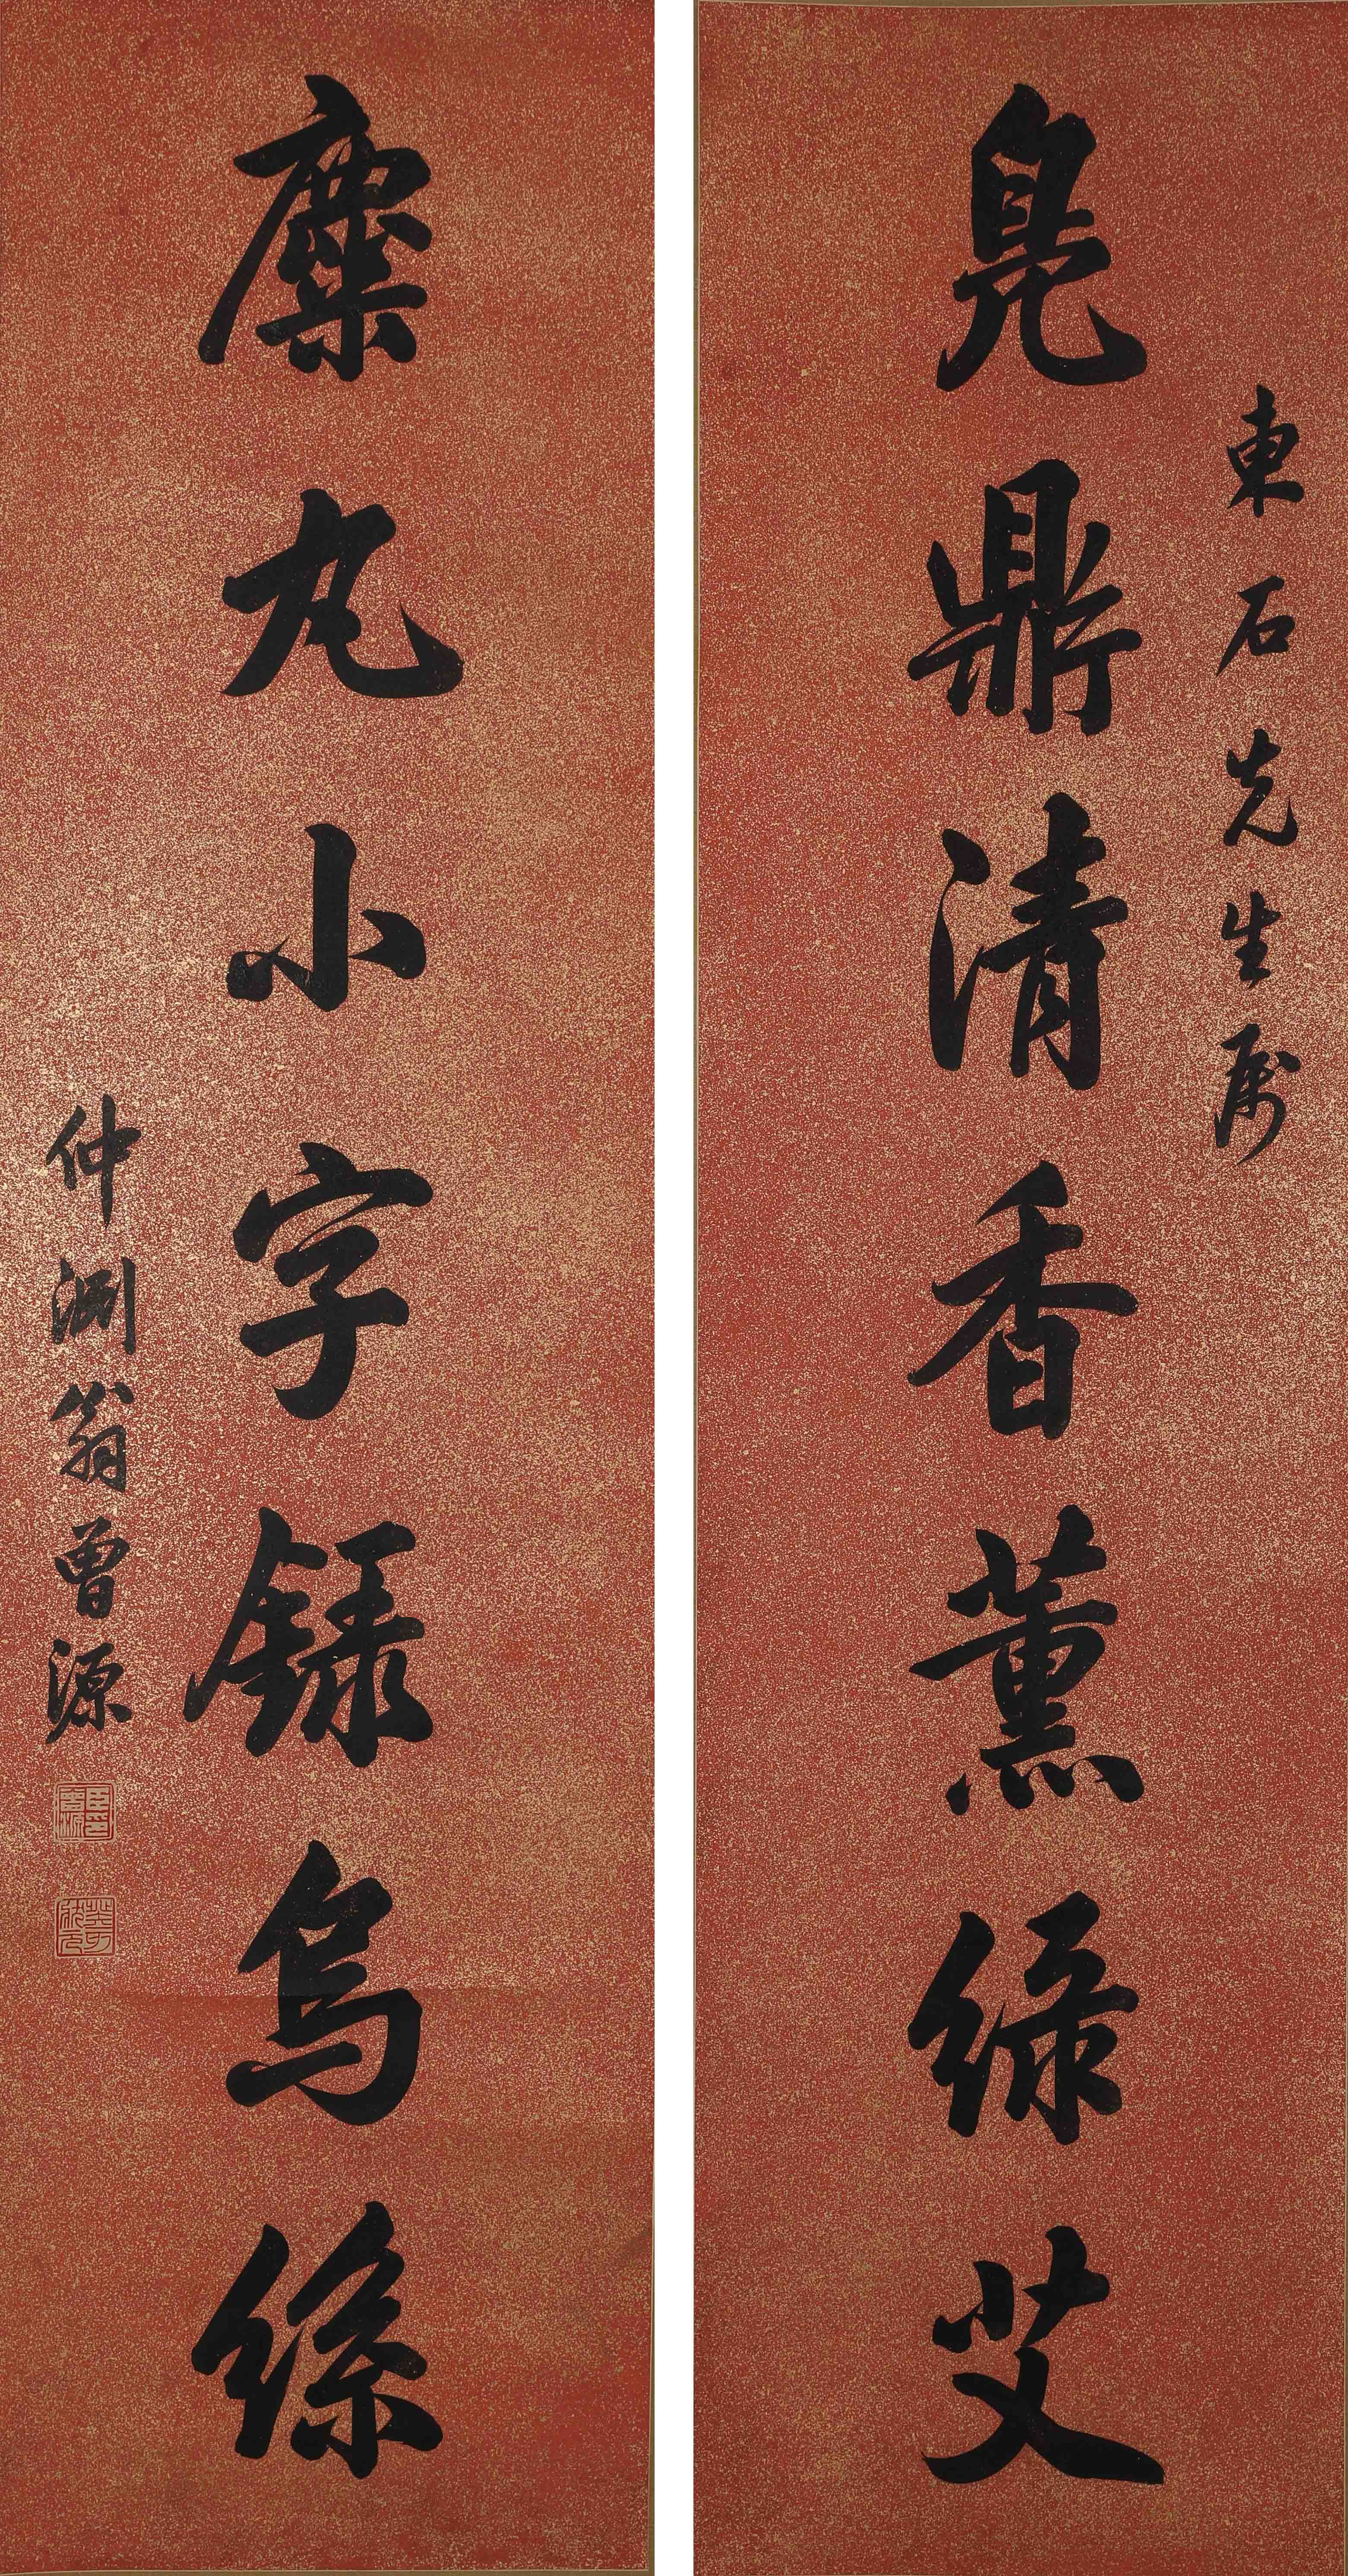 東石先生属
鳧鼎清香薰綠艾
麋丸小字録烏絲
仲淵翁曾源